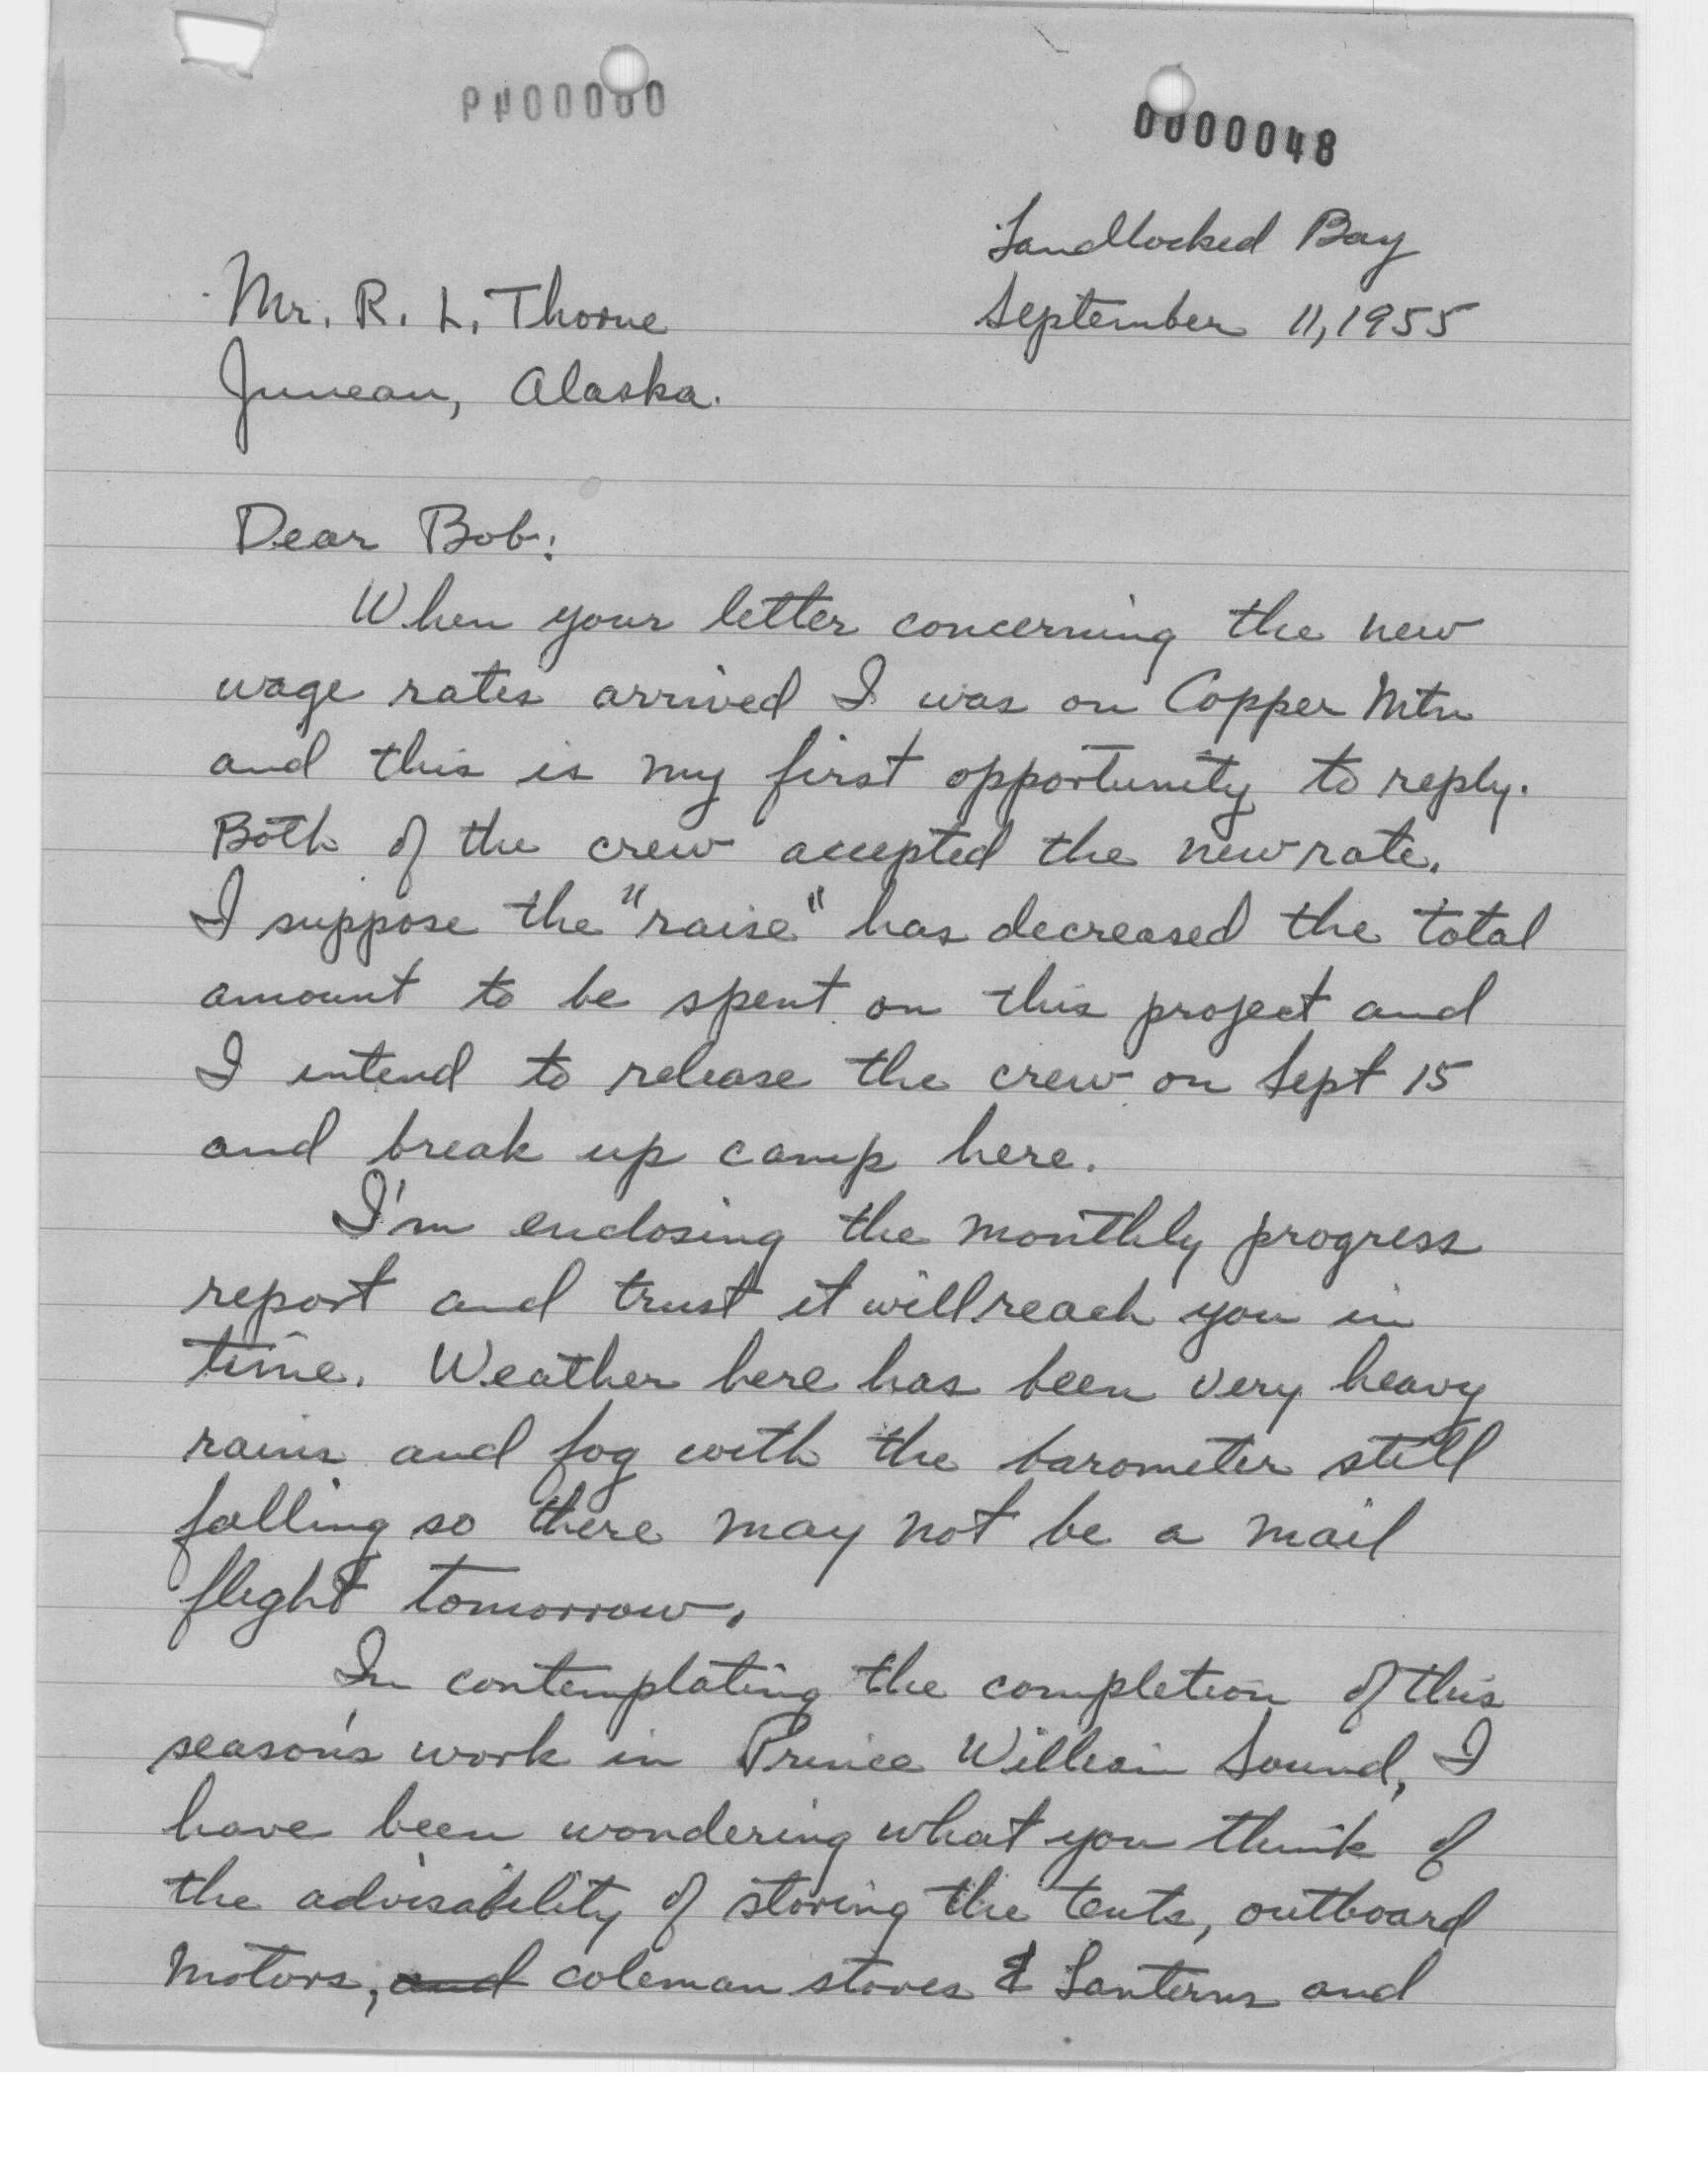 0000048
Landlocked Bay
September 11, 1955
Mr. R. L. Thorne
Juneau, Alaska.
Dear Bob:
When your letter concerning the new
wage rates arrived I was on Copper Mtn
and this is my first opportunity to reply.
Both of the crew accepted the new rate.
I suppose the "raise" has decreased the total
amount to be spent on this project and
I intend to release the crew on Sept 15
and break up camp here.
I'm enclosing the monthly progress
report and trust it will reach you in
time. Weather here has been very heavy
rains and fog with the barometer still
falling so there may not be a mail
flight tomorrow.
In contemplating the completion of this
season's work in Prince William Sound, I
have been wondering what you think of
the advisability of storing the tents, outboard
motors, and coleman stoves & Lanterns and